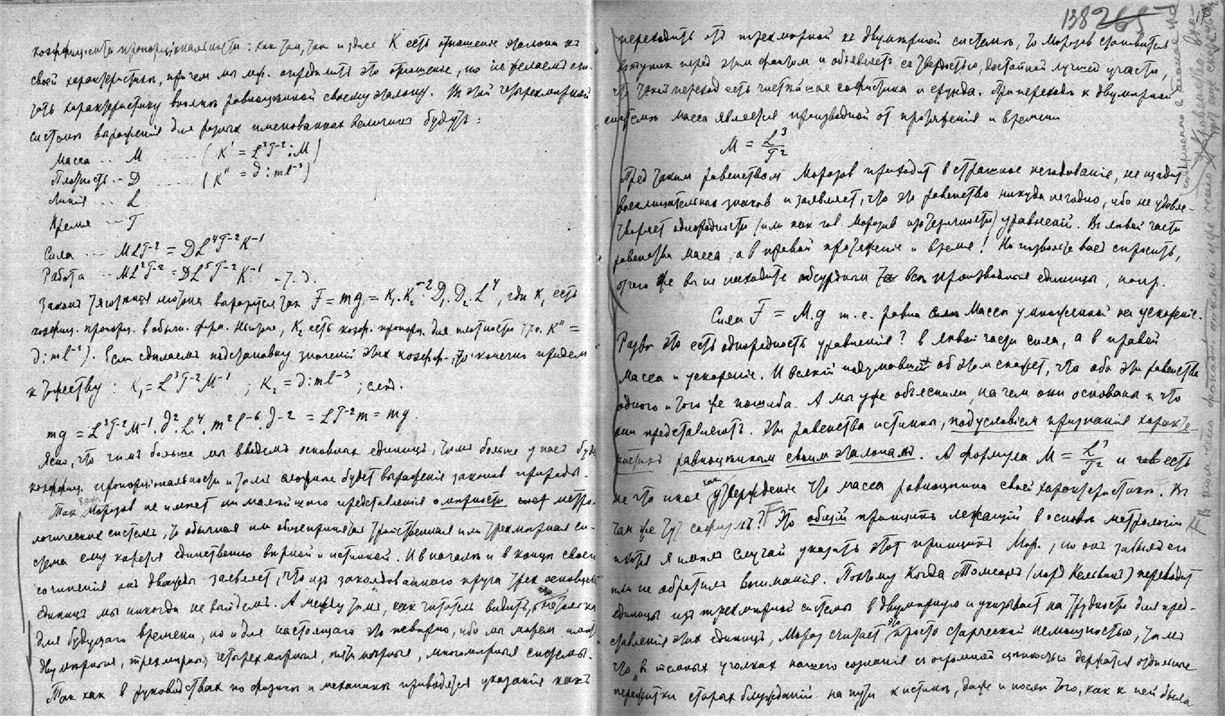 коэффиц. пропорціональности: какъ тамъ, такъ и здѣсь K есть отношеніе эталона къ
своей характеристикѣ, причемъ мы мож. опредѣлить это отношеніе, но не желаемъ
характеристику вполнѣ равноцѣнной своему эталону. Въ этой четырехмѣрной
системѣ выраженія для разныхъ именованныхъ величинъ будутъ:
Масса .. M ..... (K' = L³T⁻²:M)
Плотность .. D ..... (K'' = d:ml⁻³)
Линія .. L
Время .. T
Сила ... MLT⁻² = DL⁴T⁻²K⁻¹
Работа .. ML²T⁻² = DL⁵T⁻²K⁻¹ и т. д.
Законъ тяготѣнія Ньютона выразится такъ F = mg = K₁.K₂⁻².D₁.D₂.L⁴, гдѣ K₁ есть
коэффиц. пропорц. въ обычн. форм. Ньютона, K₂ есть коэф. пропорц. для плотности т.е. K'' =
d:ml⁻³). Если сдѣлаемъ подстановку значеній этихъ коэфф., то конечно придемъ
къ тождеству: K₁ = L³T⁻²M⁻¹ ; K₂ = d:ml⁻³ ; слѣд.
mg = L³T⁻²M⁻¹.d².L⁴.m²l⁻⁶.d⁻² = LT⁻²m = mg.
Ясно, что чѣмъ больше мы введемъ основныхъ единицъ, тѣмъ больше у насъ буд.
коэффиц. пропорціональности и тѣмъ сложнѣе будетъ выраженіе законовъ природы.
Такъ какъ Морозовъ не имѣетъ ни малѣйшаго представленія о мѣрности метро-
логическихъ системъ, то обычная или общепринятая трехмѣрная си-
стема ему кажется единственно вѣрной и истинной. И въ началѣ и въ концѣ своего
сочиненія онъ дважды заявляетъ, что изъ заколдованнаго круга трехъ основныхъ
единицъ мы никогда не выйдемъ. А между тѣмъ, какъ читатель видитъ, не только
для будущаго времени, но и для настоящаго это невѣрно, ибо мы можемъ имѣть
двумѣрныя, трехмѣрныя, четырехмѣрныя, пятимѣрныя, многомѣрныя системы.
Такъ какъ въ руководствахъ по физикѣ и механикѣ приводятся указанія какъ
138
переходить отъ трехмѣрной къ двумѣрной системѣ, то Морозовъ становится
втупикъ передъ этимъ фактомъ и объявляетъ съ твердостью, достойной лучшей участи,
что такой переходъ есть чистѣйшая софистика и ерунда. При переходѣ къ двумѣрной
системѣ масса является производной отъ протяженія и времени
M = L³/T²
Предъ такимъ равенствомъ Морозовъ приходитъ въ страшное негодованіе, не щадитъ
восклицательныхъ знаковъ и заявляетъ, что это равенство никуда негодно, ибо не удовле-
творяетъ однородности (или какъ гов. Морозовъ) уравненій. Въ лѣвой части
равенства масса, а въ правой протяженіе и время! Но позвольте васъ спросить,
отчего же вы не находите абсурдными всѣ производныя единицы, напр.
Сила F = M.g т.е. равна Массѣ умноженной на ускореніе.
Развѣ это есть однородность уравненія? въ лѣвой части сила, а въ правой
масса и ускореніе. И всякій подумавшій объ этомъ скажетъ, что оба эти равенства
одного и того же пошиба. А мы уже объяснили, на чемъ они основаны и что
они представляютъ. Эти равенства истинны, подъ условіемъ признанія характе-
ристикъ равноцѣнными своимъ эталонамъ. А формула M = L³/T² и есть
не что иное какъ утвержденіе что масса равноцѣнна своей характеристикѣ. Въ
чемъ же тутъ софизмъ? Это общій принципъ лежащій въ основѣ метрологіи
хотя я имѣлъ случай указать этотъ принципъ Мор., но онъ забылъ его
или не обратилъ вниманія. Поэтому когда Томсонъ (лордъ Кельвинъ) переводитъ
единицы изъ трехмѣрной системы въ двумѣрную и указываетъ на трудность для пред-
ставленія этихъ единицъ, Мороз. считаетъ это просто старческой немощностью, тѣмъ
что „въ темныхъ уголкахъ нашего сознанія съ огромной цѣпкостью держатся отдѣльные
пережитки старыхъ блужданій на пути къ истинѣ, даже и послѣ того, какъ къ ней была